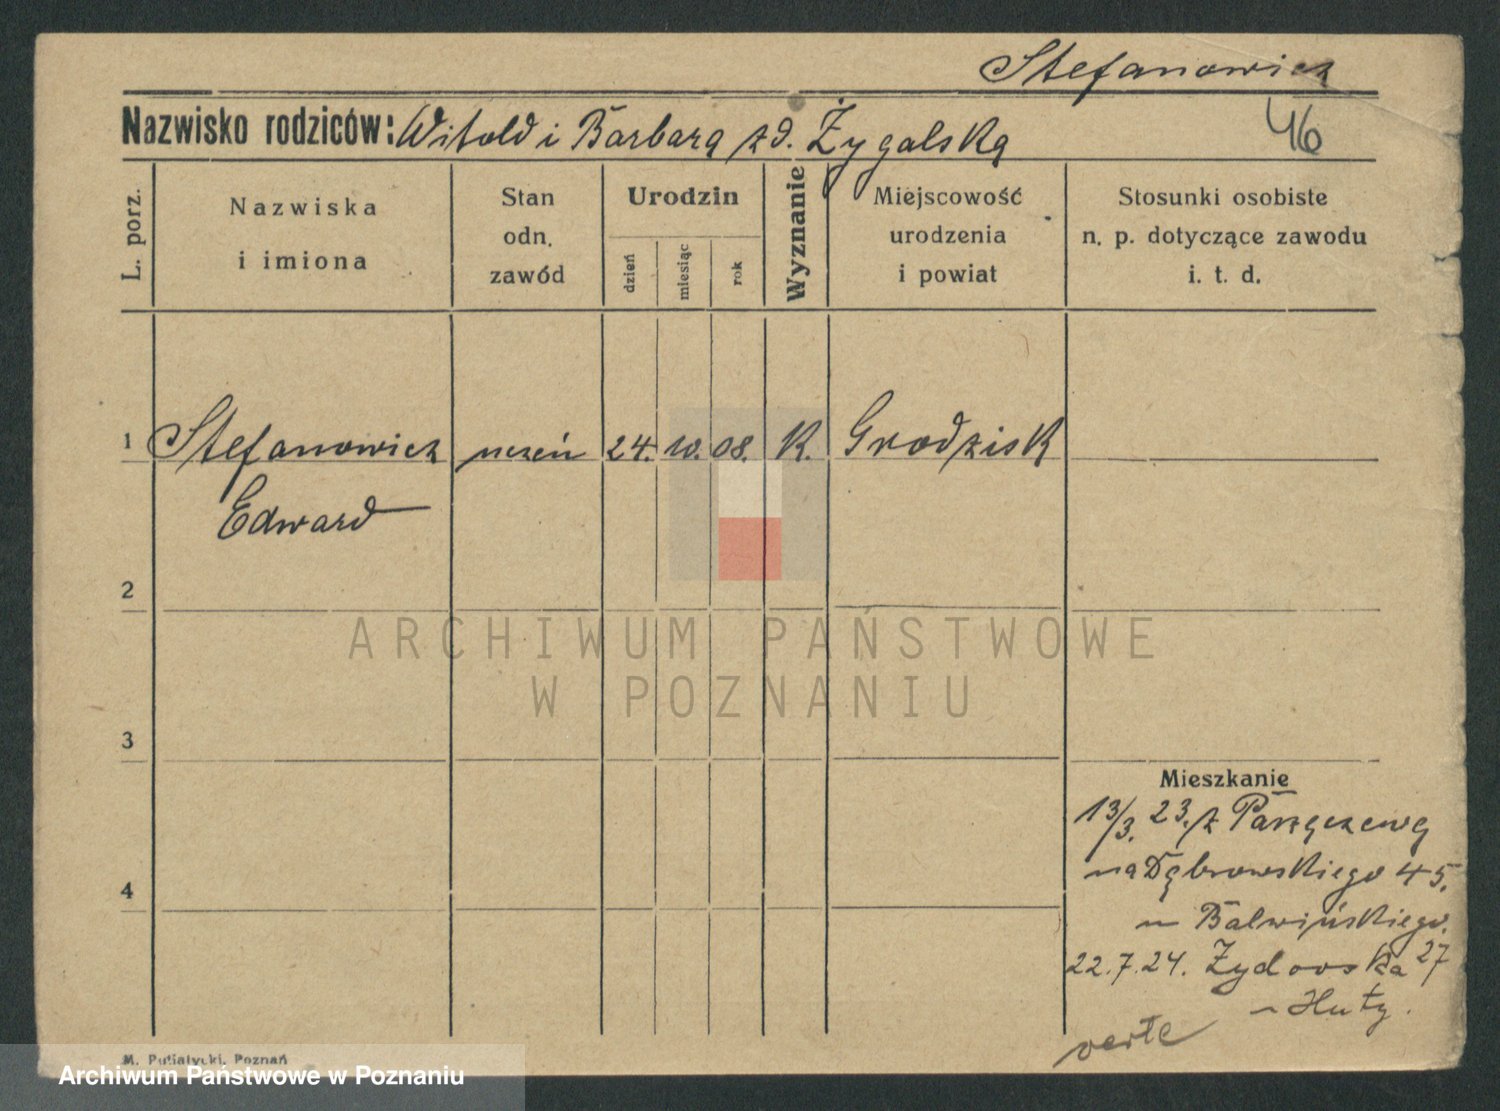 Stefanowicz
Nazwisko rodziców: Witold i Barbara zd. Żygalska
46
L. porz.
Nazwiska
i imiona
Stan
odn.
zawód
Urodzin
dzień
miesiąc
rok
Wyznanie
Miejscowość
urodzenia
i powiat
Stosunki osobiste
n. p. dotyczące zawodu
i. t. d.
1 Stefanowicz uczeń 24. 10. 08. K. Grodzisk
Edward
2
ARCHIWUM PAŃSTWOWE
W POZNANIU
3
Mieszkanie
13/3. 23. z Parzęczewa
na Dąbrowskiego 45.
u Balwińskiego.
22.7.24. Żydowska 27
u Huty.
verte
4
M. Putiatycki, Poznań
Archiwum Państwowe w Poznaniu